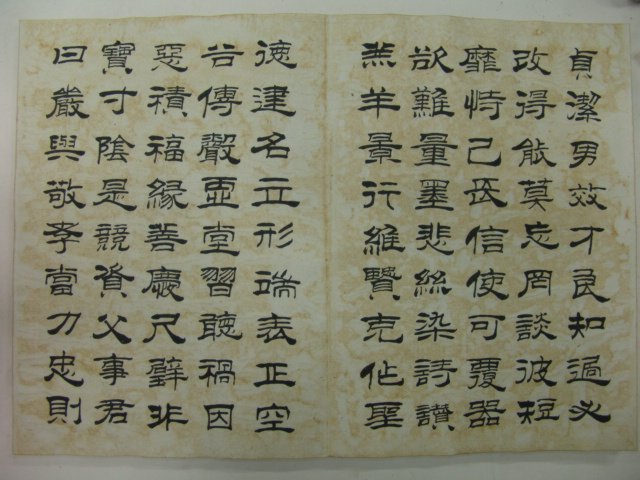 貞潔男效才良知過必
改得能莫忘罔談彼短
靡恃己長信使可覆器
欲難量墨悲絲染詩讚
羔羊景行維賢克作聖
德建名立形端表正空
谷傳聲虛堂習聽禍因
惡積福緣善慶尺璧非
寶寸陰是競資父事君
曰嚴與敬孝當力忠則